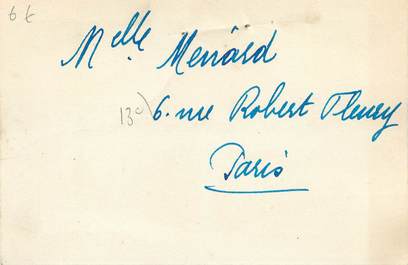 6€
Melle Menard
13c) 6. rue Robert Fleury
Paris